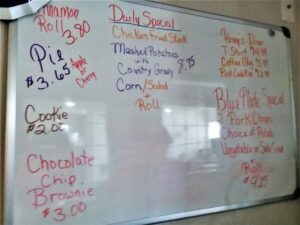 Cinnamon
Roll
3.80
Pie
$3.65
Apple or
Cherry
Cookie
$2.00
Chocolate
Chip
Brownie
$3.00
Daily Special
Chicken Fried Steak
Mashed Potatoes
with
Country Gravy
8.95
Corn/Salad
+
Roll
Penny's Diner
T. Shirt
Coffee Mug
Blue Plate Special
2 Pork Chops
Choice of Potato
Vegetable or
Roll
$9.25